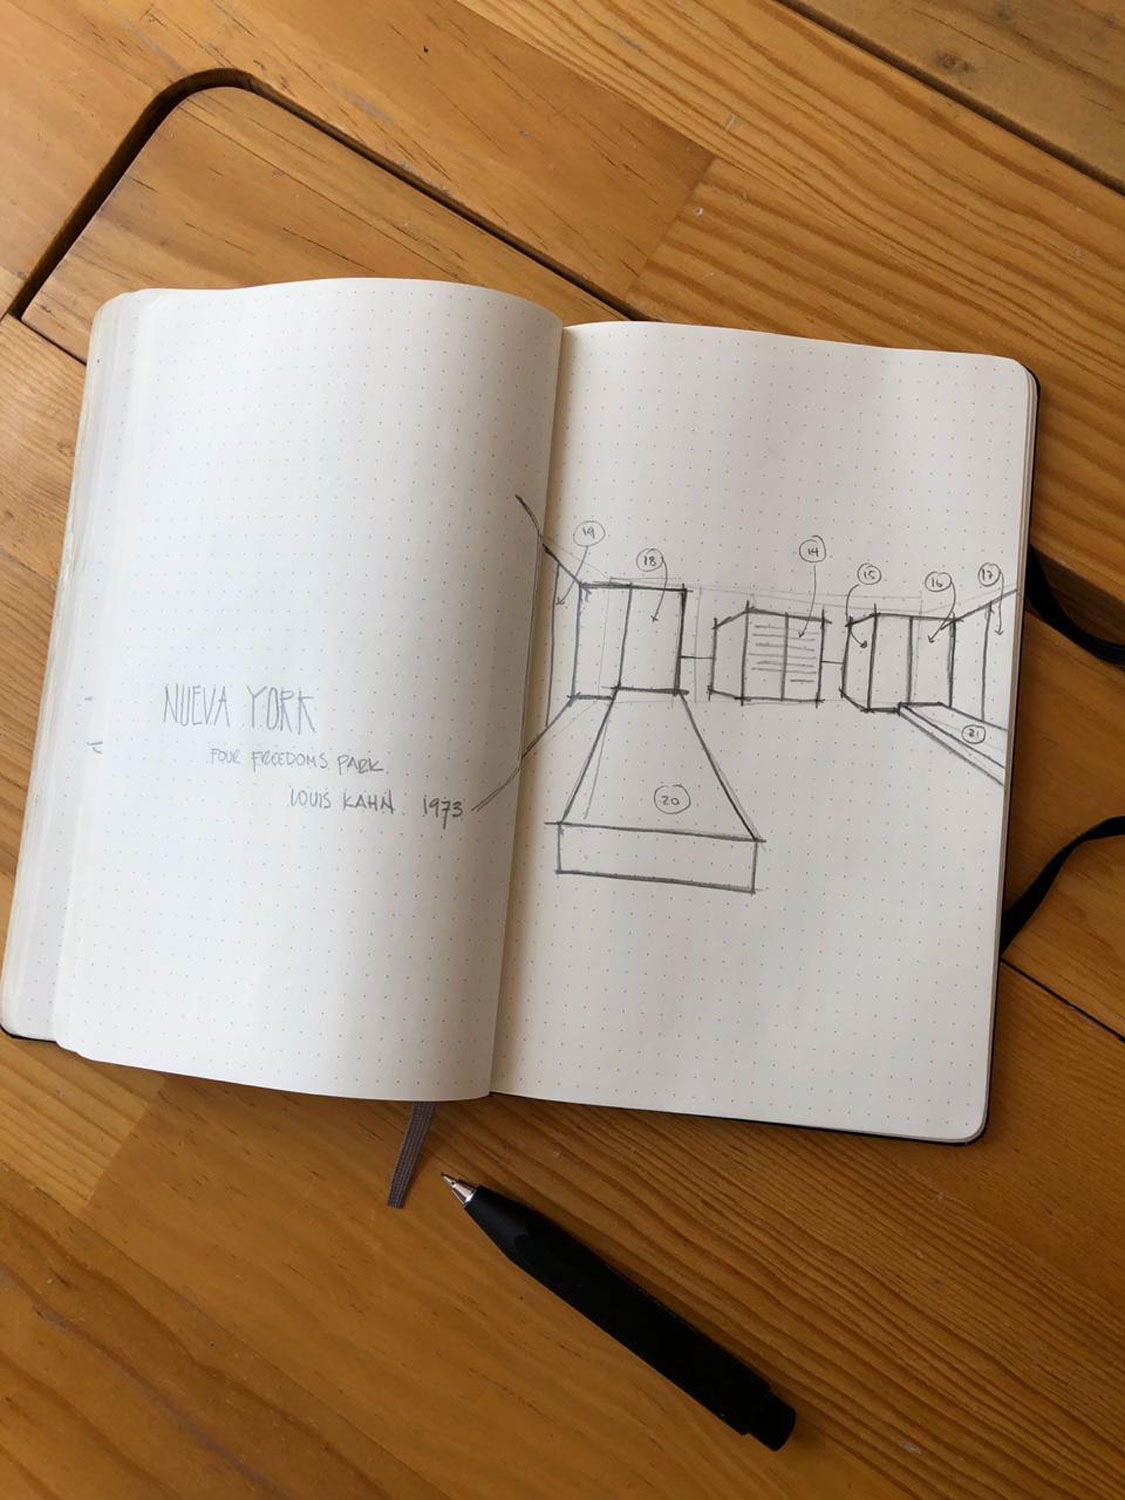 NUEVA YORK
FOUR FREEDOMS PARK.
LOUIS KAHN 1973
19
18
14
15
16
17
21
20